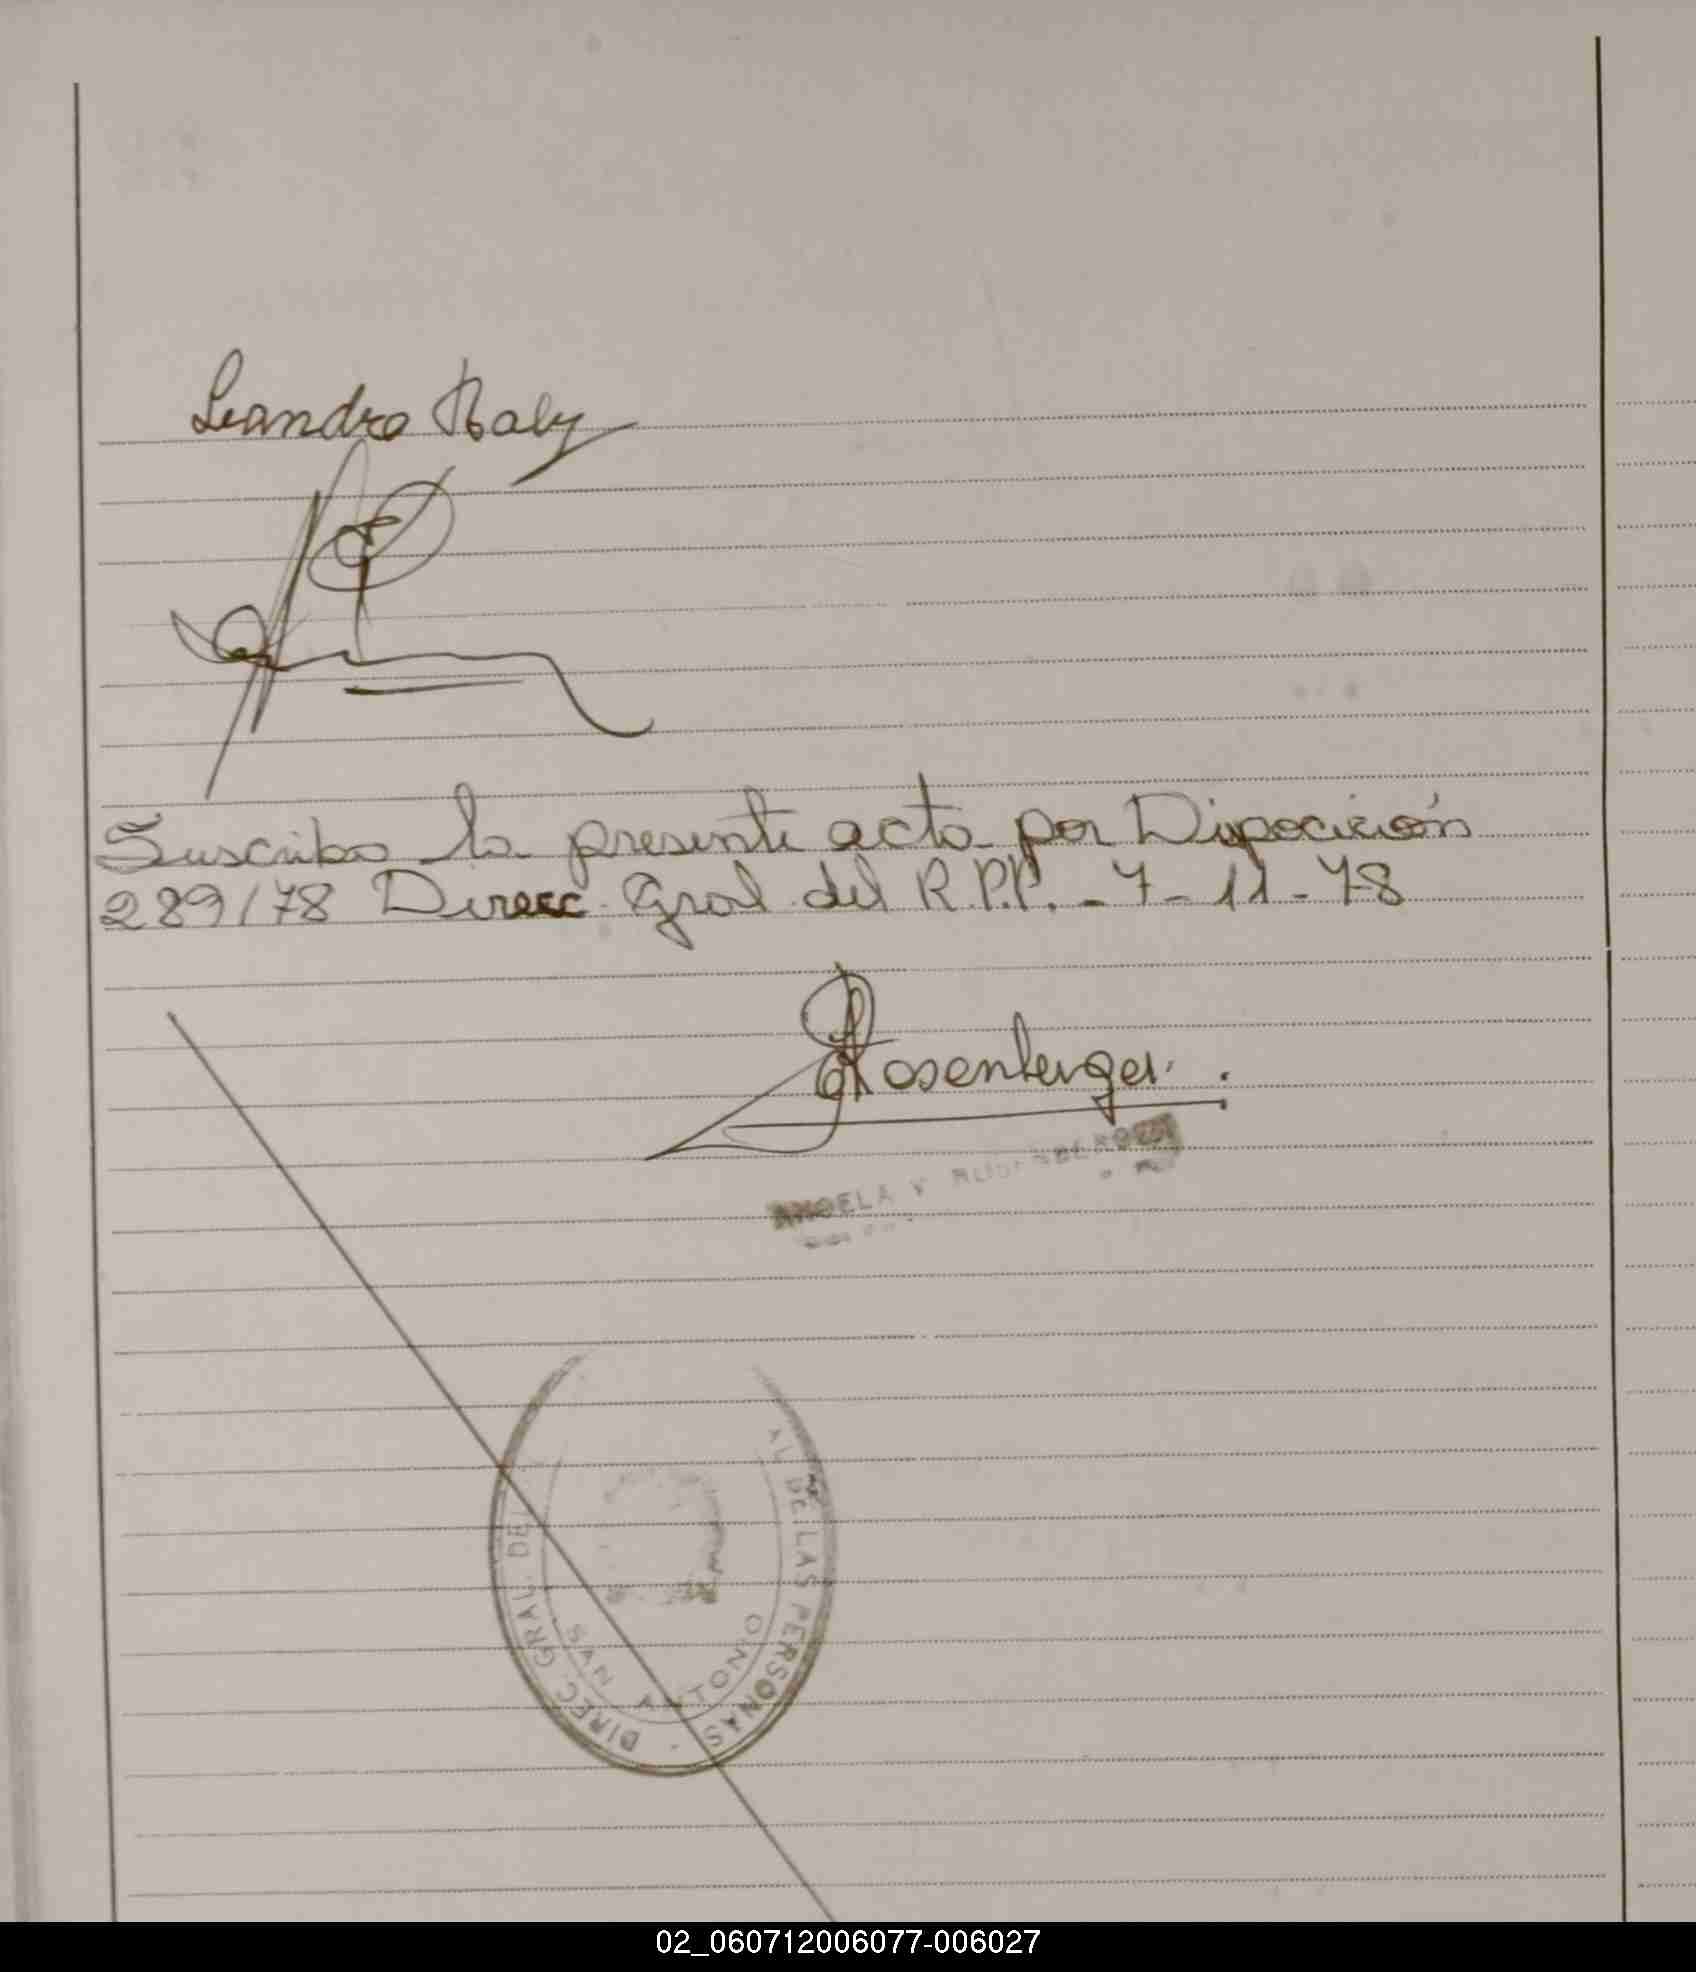 Leandro
Suscribo la presente acta por Dipocición
289/78 Direcc. Gral del R.P.P. - 7-11-78
Rosenberger.
ANGELA V
DIREC. GRAL. DEL AL DE LAS PERSONAS
SAN ANTONIO
02_060712006077-006027